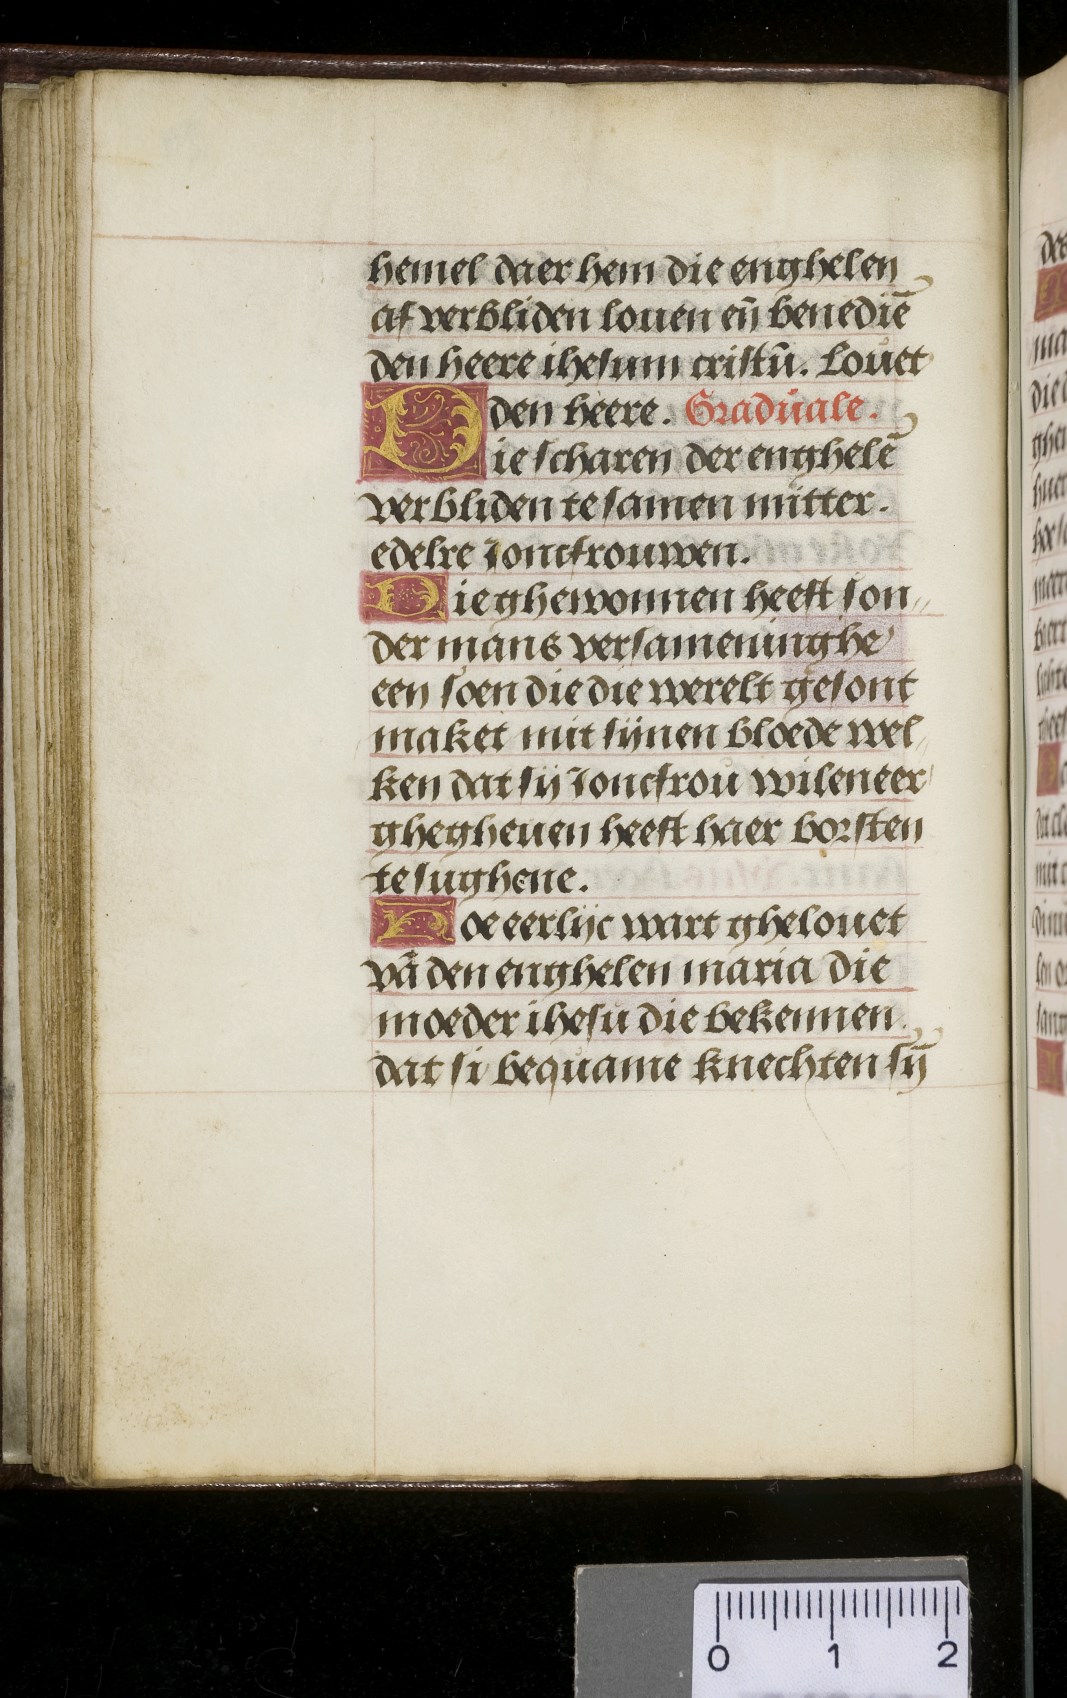 hemel daer hem die enghelen
af verbliden louen en̄ benediē
den heere ihesum cristū. Louet
den heere. Graduale.
Die scharen der enghelē
verbliden te samen mitter.
edelre Joncfrouwen.
Die ghewonnen heeft son„
der mans versameninghe
een soen die die werelt gesont
maket mit sijnen bloede wel„
ken dat sij Joncfrou wileneer
ghegheuen heeft haer borsten
te sughene.
Hoe eerlijc wart ghelouet
vā den enghelen maria die
moeder ihesu die bekennen
dat si bequame knechten sȳ
0 1 2